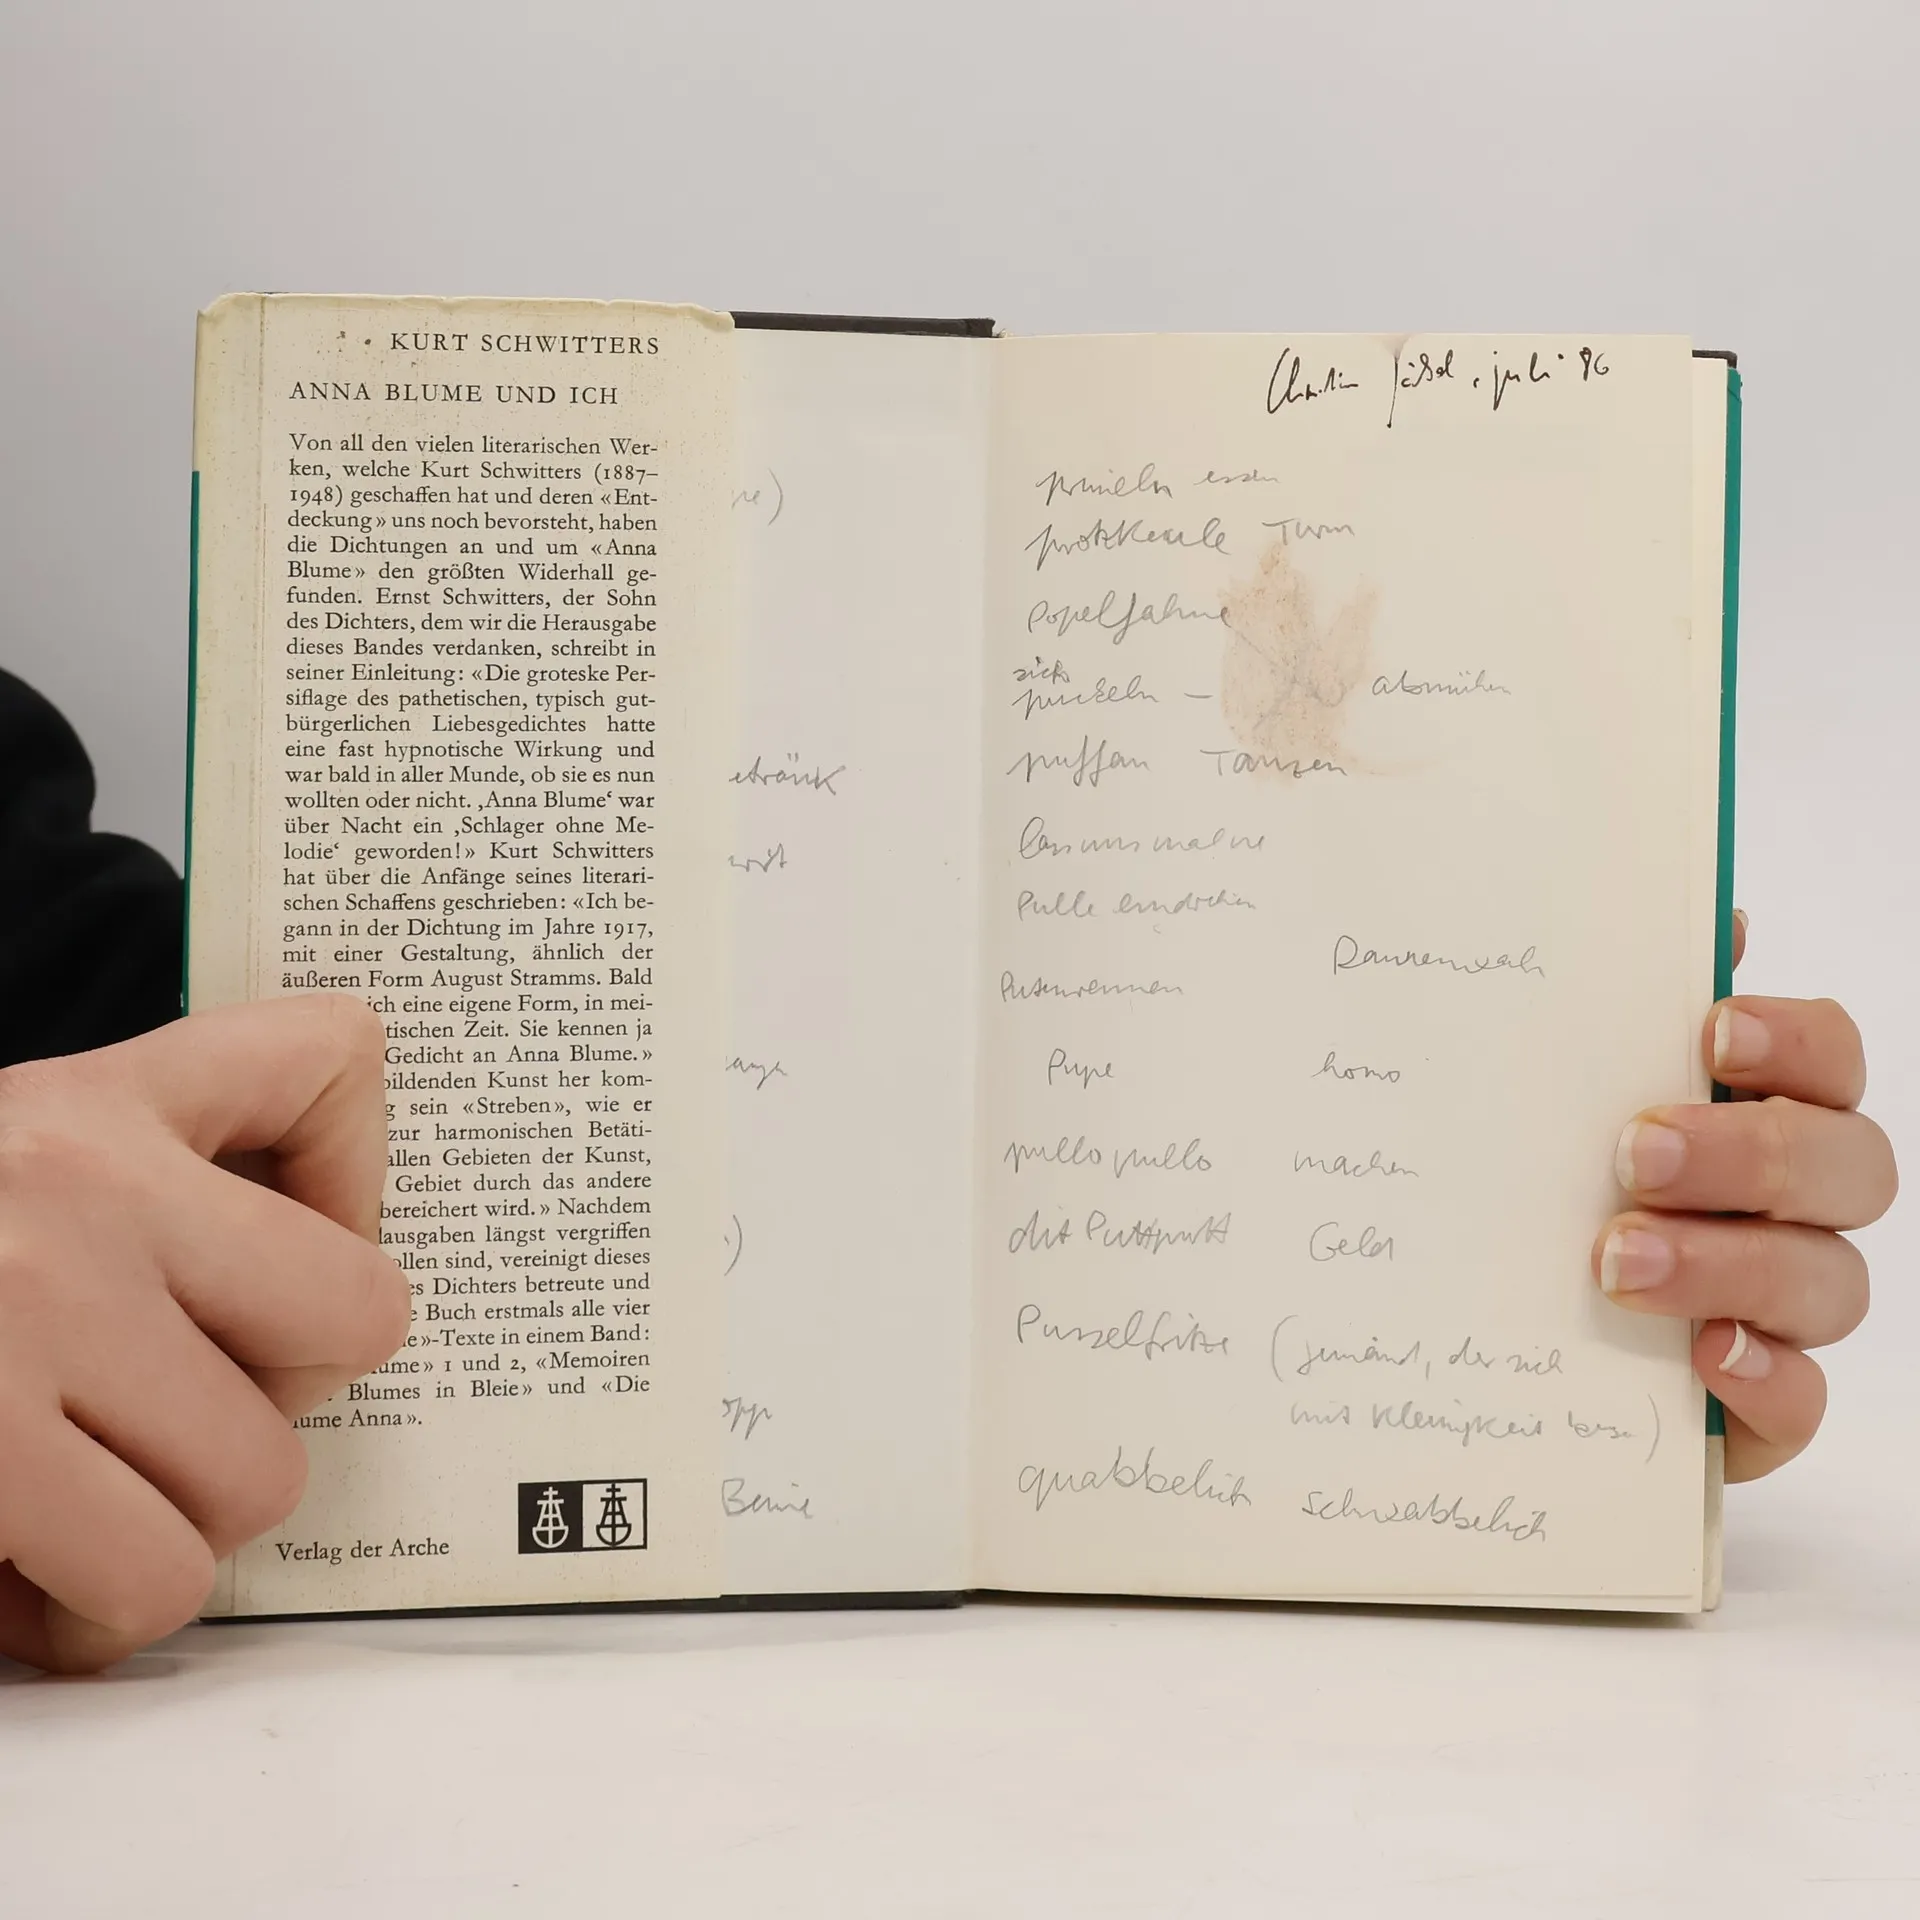 KURT SCHWITTERS
ANNA BLUME UND ICH
Von all den vielen literarischen Wer-
ken, welche Kurt Schwitters (1887–
1948) geschaffen hat und deren «Ent-
deckung» uns noch bevorsteht, haben
die Dichtungen an und um «Anna
Blume» den größten Widerhall ge-
funden. Ernst Schwitters, der Sohn
des Dichters, dem wir die Herausgabe
dieses Bandes verdanken, schreibt in
seiner Einleitung: «Die groteske Per-
siflage des pathetischen, typisch gut-
bürgerlichen Liebesgedichtes hatte
eine fast hypnotische Wirkung und
war bald in aller Munde, ob sie es nun
wollten oder nicht. ‚Anna Blume‘ war
über Nacht ein ‚Schlager ohne Me-
lodie‘ geworden!» Kurt Schwitters
hat über die Anfänge seines literari-
schen Schaffens geschrieben: «Ich be-
gann in der Dichtung im Jahre 1917,
mit einer Gestaltung, ähnlich der
äußeren Form August Stramms. Bald
ich eine eigene Form, in mei-
tischen Zeit. Sie kennen ja
Gedicht an Anna Blume.»
bildenden Kunst her kom-
g sein «Streben», wie er
zur harmonischen Betäti-
allen Gebieten der Kunst,
Gebiet durch das andere
bereichert wird.» Nachdem
lausgaben längst vergriffen
ollen sind, vereinigt dieses
es Dichters betreute und
e Buch erstmals alle vier
e»-Texte in einem Band:
ume» 1 und 2, «Memoiren
Blumes in Bleie» und «Die
lume Anna».
Verlag der Arche
etränk
opp
Beine
juli 86
primeln essen
protzkeule Turm
Popelfahne
sich
puckeln – abmühen
Tanzen
Pulle
Putzenrennen Damenwahl
Pupe homo
pullo pullo machen
dit Puttputt Geld
Pusselfritze (jemand, der sich
mit Kleinigkeit)
quabbelich schwabbelich